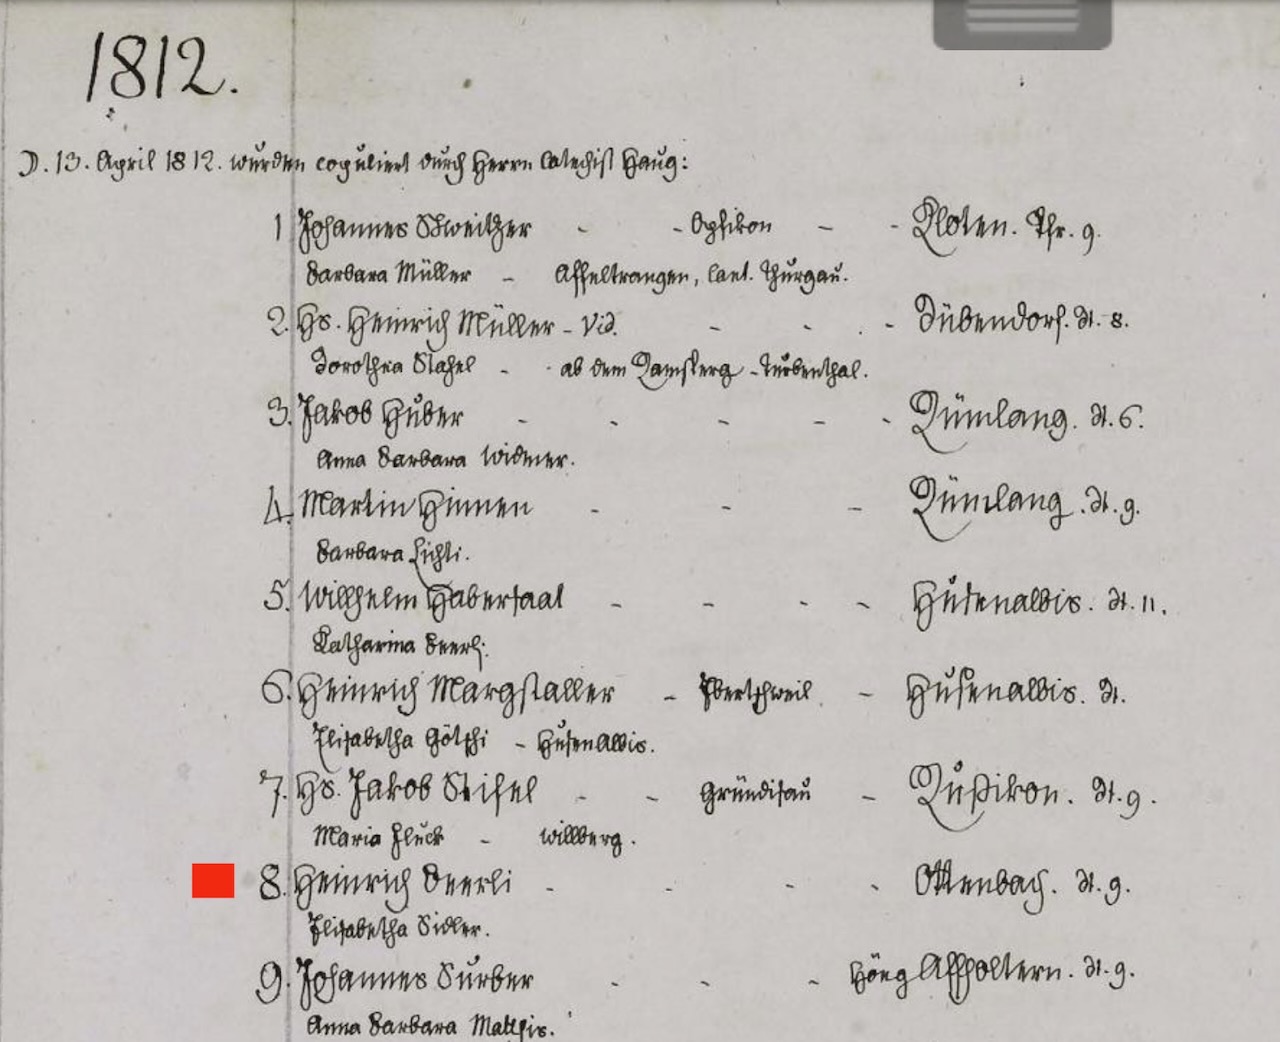 1812.
D. 13. April 1812. wurden copuliert durch Herrn Catechist Haug:
1 Johannes Schweitzer - - Opfikon - - Kloten. Thr. 9.
Barbara Müller - Affeltrangen, Cant. Thurgau.
2. Hs. Heinrich Müller - Vid. - - - Dübendorf. dt. 8.
Dorothea Stahel - - ab dem - Turbenthal.
3. Jakob Huber - - - - - Rümlang. dt. 6.
Anna Barbara Widmer.
4. Martin Hinnen - - - Rümlang. dt. 9.
Barbara Lichti.
5. Willhelm Habersaat - - - - Husenalbis. dt. 11.
Catharina Beerli.
6. Heinrich Margstaller - Ebertschweil - Husenalbis. dt.
Elisabetha Götschi - Husenalbis.
7. Hs. Jakob - - Gründisau - Rußikon. dt. 9.
Maria Fluck - Willberg.
8. Heinrich Beerli - - - - Ottenbach. dt. 9.
Elisabetha Sidler.
9. Johannes Surber - - - Höng Affholtern. dt. 9.
Anna Barbara Matthis.